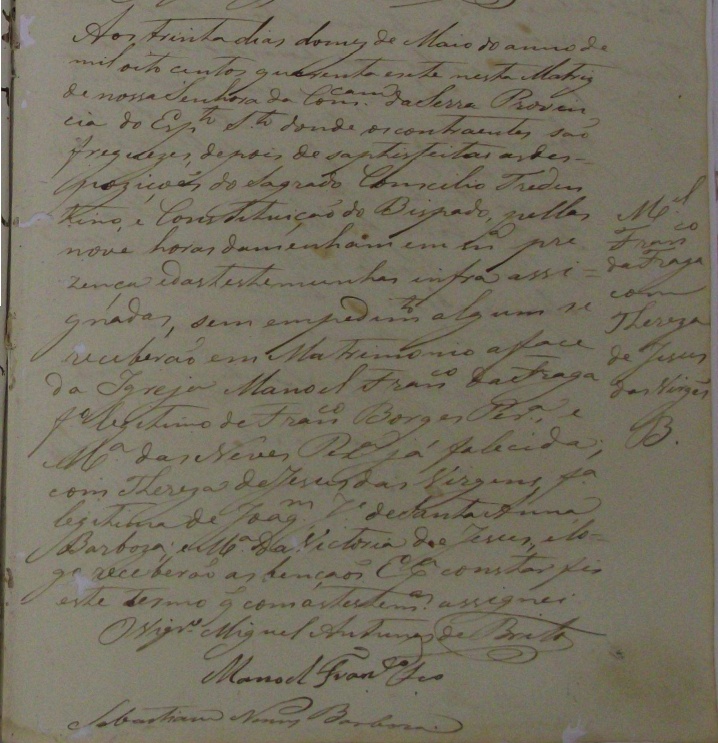 Aos trinta dias do mez de Maio do anno de
mil oito centos quarenta e sete nesta Matriz
de nossa Senhora da Conscam da Serra Provin
cia do Espto Sto donde os contraentes são
freguezes, depois de satisfeitas as des=
poziçoẽs do Sagrado Concilio Treden
tino, e Constituição do Bispado, pellas
nove horas da menham em ma pre
zença e das testemunhas infra assi=
gnadas, sem empedimto algum se
receberão em Matrimonio a face
da Igreja Manoel Franco da Fraga
fo legitimo de Franco Borges Pera, e
Ma das Neves Pera já falecida;
com Thereza de Jesus das Virgens, fa
legitima de Joaqm de Santa Anna
Barboza; e Ma da Victoria de Jesus, e lo=
go receberão as bençaõs. E pa constar fis
este termo q com as testemas assignei.
O Vigro Miguel Antunes de Brito
Manoel Fran
Sebastiam Nunes Barboza
Mel
Franco
da Fraga
com
Thereza
de Jesus
das Virgẽs
B.